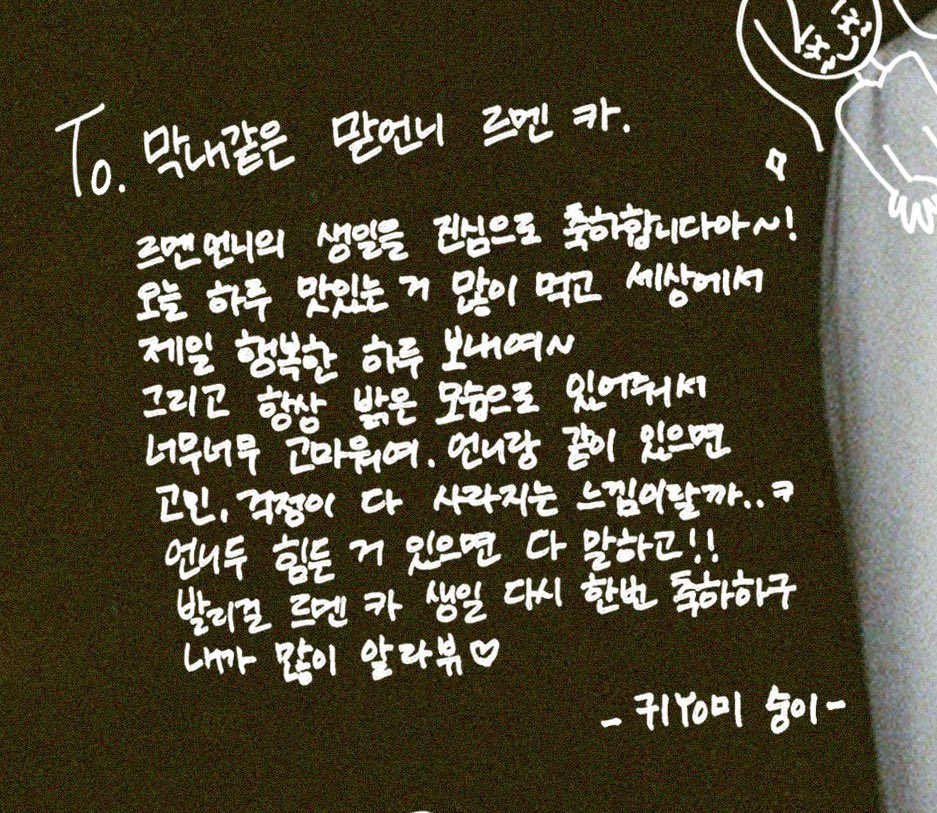 To. 막내같은 맏언니 르멘 카.
르멘언니의 생일을 진심으로 축하합니다아~!
오늘 하루 맛있는 거 많이 먹고 세상에서
제일 행복한 하루 보내여~
그리고 항상 밝은 모습으로 있어줘서
너무너무 고마워여. 언니랑 같이 있으면
고민, 걱정이 다 사라지는 느낌이랄까..ㅋ
언니두 힘든 거 있으면 다 말하고!!
발리걸 르멘 카 생일 다시 한번 축하하구
내가 많이 알라뷰♡
- 귀Yo미 숭이 -